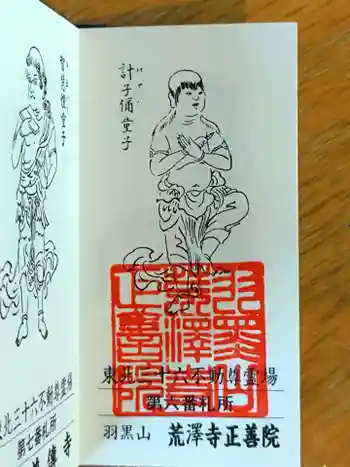 計子儞童子
羽黒山
荒澤寺
正善院
東北三十六不動尊霊場
第六番札所
羽黒山 荒澤寺正善院
智慧幢童子
東北三十六不動尊霊場
第七番札所
傳寺